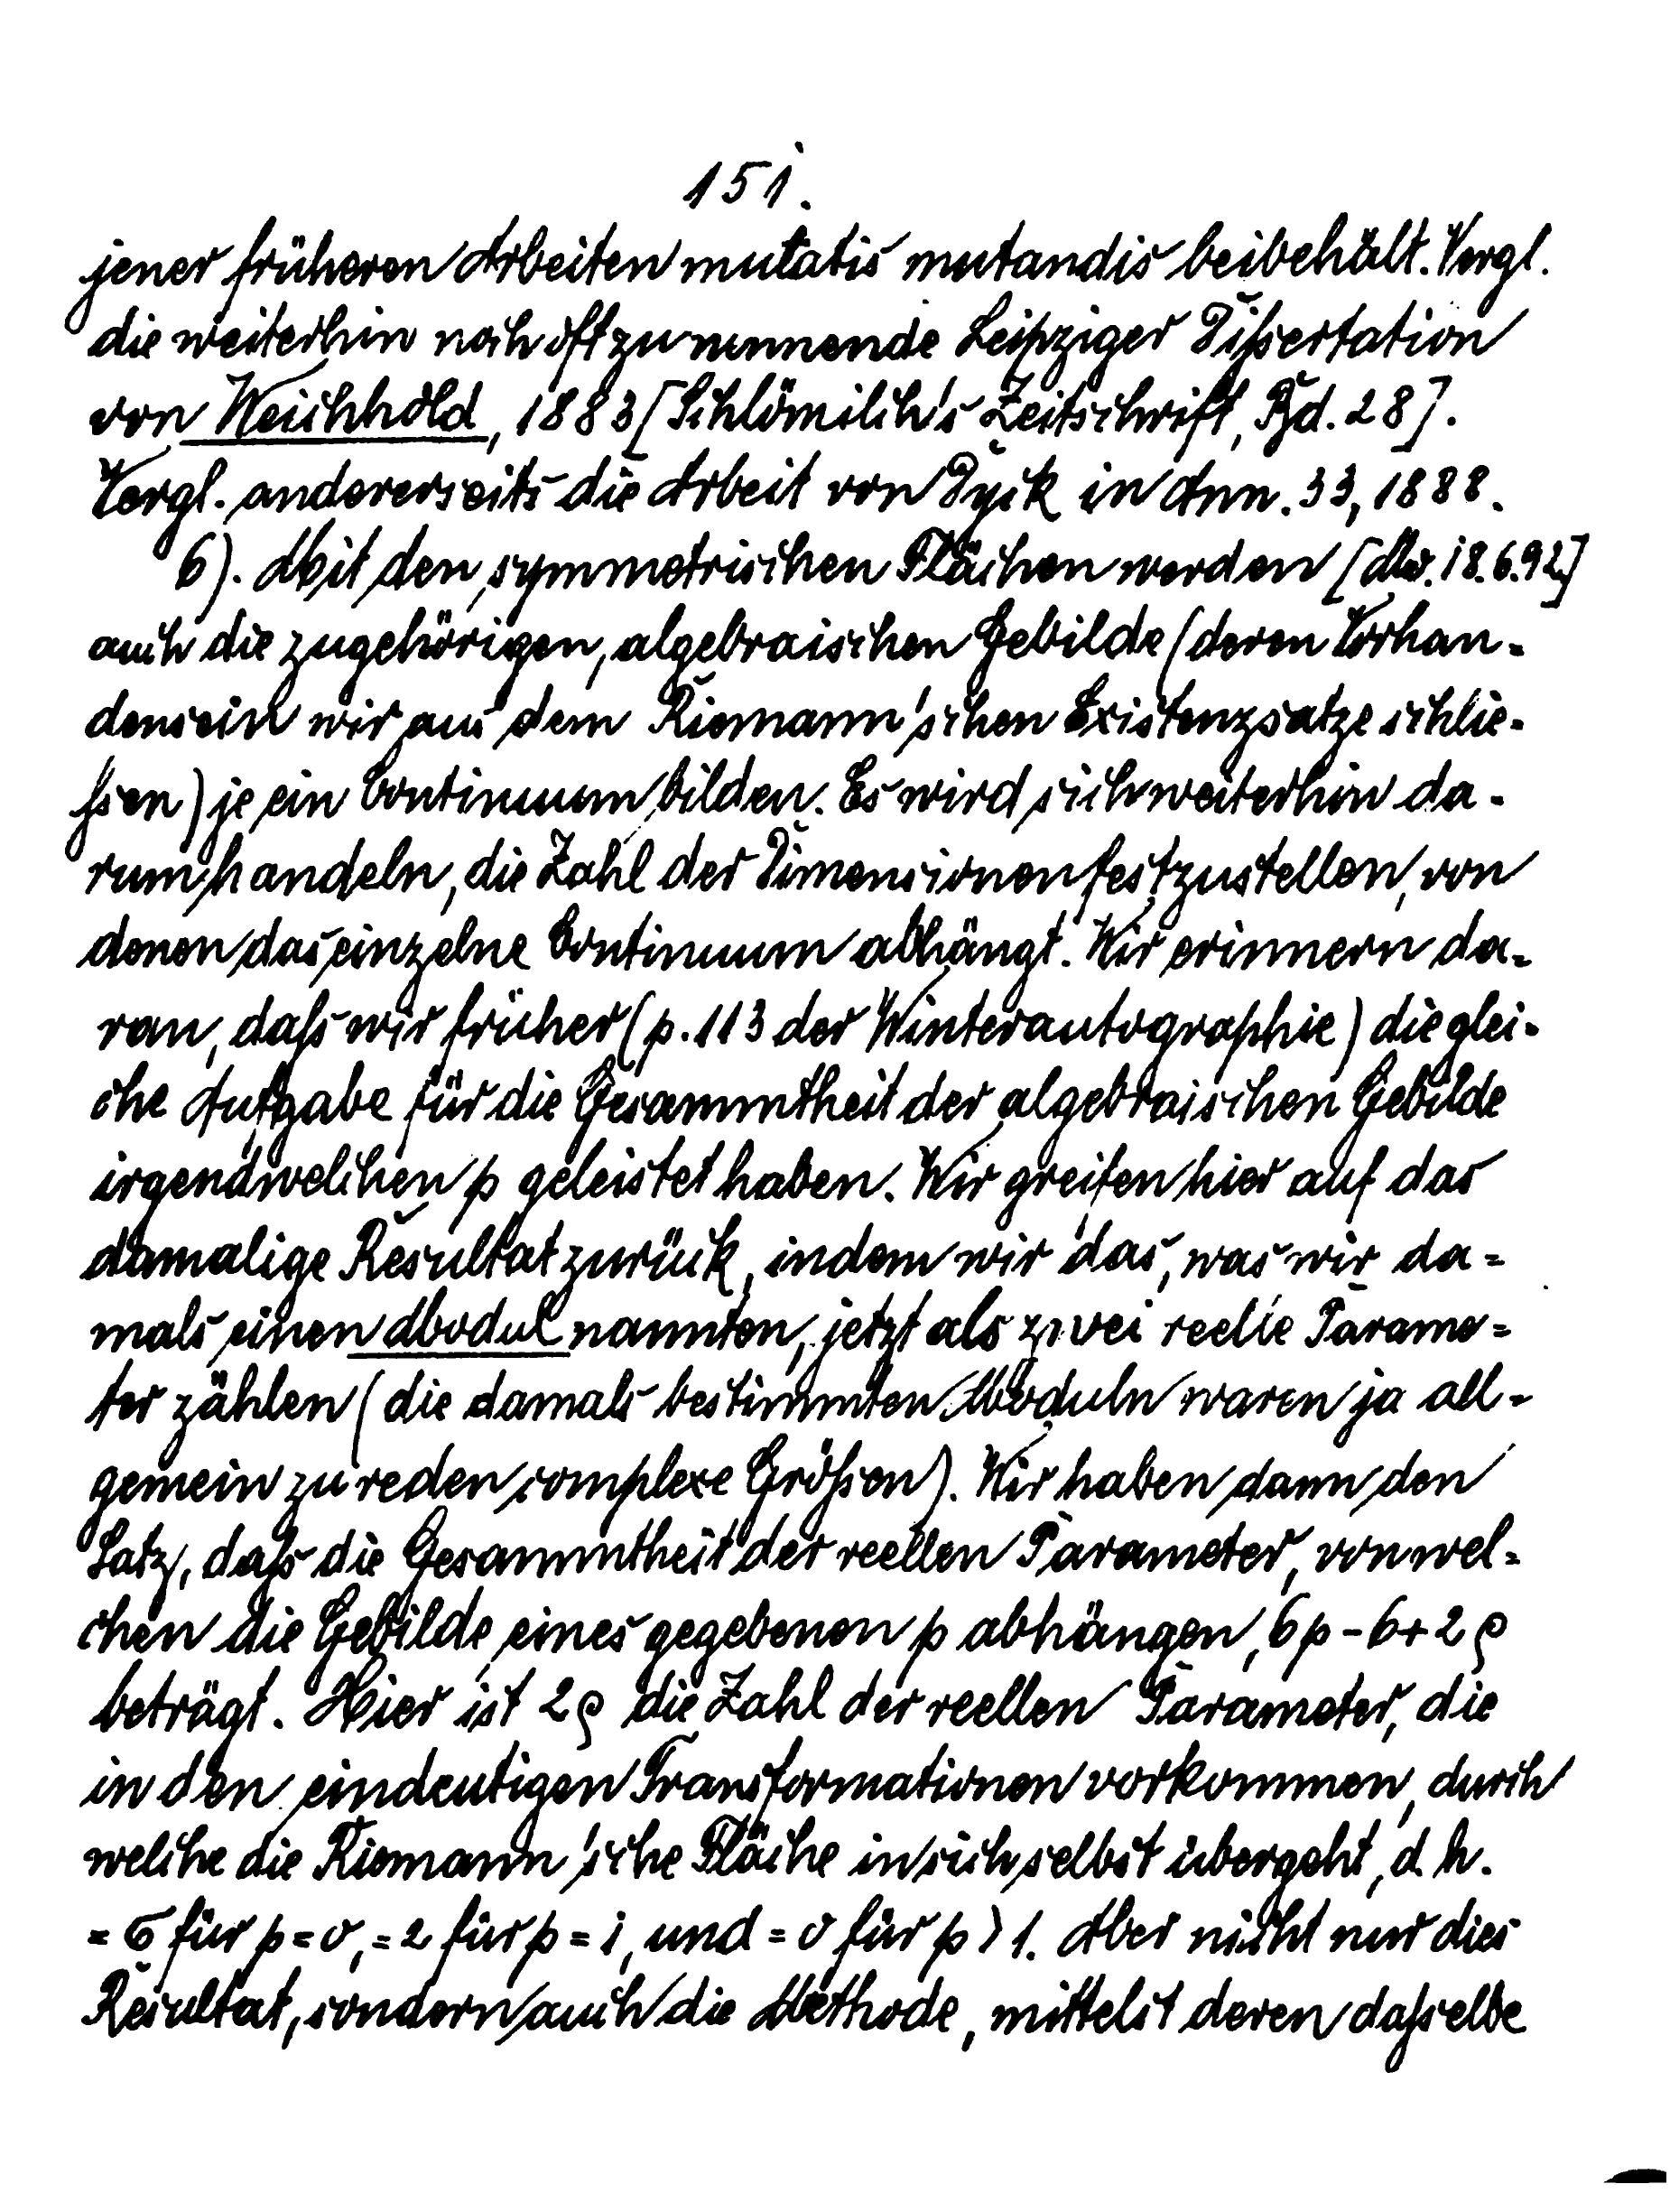 151.
jener früheren Arbeiten mutatis mutandis beibehält. Vergl.
die weiterhin noch oft zu nennende Leipziger Dißertation
von Weichhold, 1883 [Schlömilch's Zeitschrift, Bd. 28].
Vergl. andererseits die Arbeit von Dyck in Ann. 33, 1888.
6). Mit den symmetrischen Flächen werden [Mo. 18.6.92]
auch die zugehörigen, algebraischen Gebilde (deren Vorhan-
densein wir aus dem Riemann'schen Existenzsatze schlie-
ßen) je ein Continuum bilden. Es wird sich weiterhin da-
rum handeln, die Zahl der Dimensionen festzustellen, von
denen das einzelne Continuum abhängt. Wir erinnern da-
ran, daß wir früher (p. 113 der Winterautographie) die glei-
che Aufgabe für die Gesammtheit der algebraischen Gebilde
irgendwelchen p geleistet haben. Wir greifen hier auf das
damalige Resultat zurück, indem wir das, was wir da-
mals einen Modul nannten, jetzt als zwei reelle Parame-
ter zählen (die damals bestimmten Moduln waren ja all-
gemein zu reden complexe Größen). Wir haben dann den
Satz, daß die Gesammtheit der reellen Parameter, von wel-
chen die Gebilde eines gegebenen p abhängen, 6p-6+2ρ
beträgt. Hier ist 2ρ die Zahl der reellen Parameter, die
in den eindeutigen Transformationen vorkommen, durch
welche die Riemann'sche Fläche in sich selbst übergeht, d. h.
= 6 für p = 0, = 2 für p = 1, und = 0 für p > 1. Aber nicht nur dies
Resultat, sondern auch die Methode, mittelst deren daßelbe